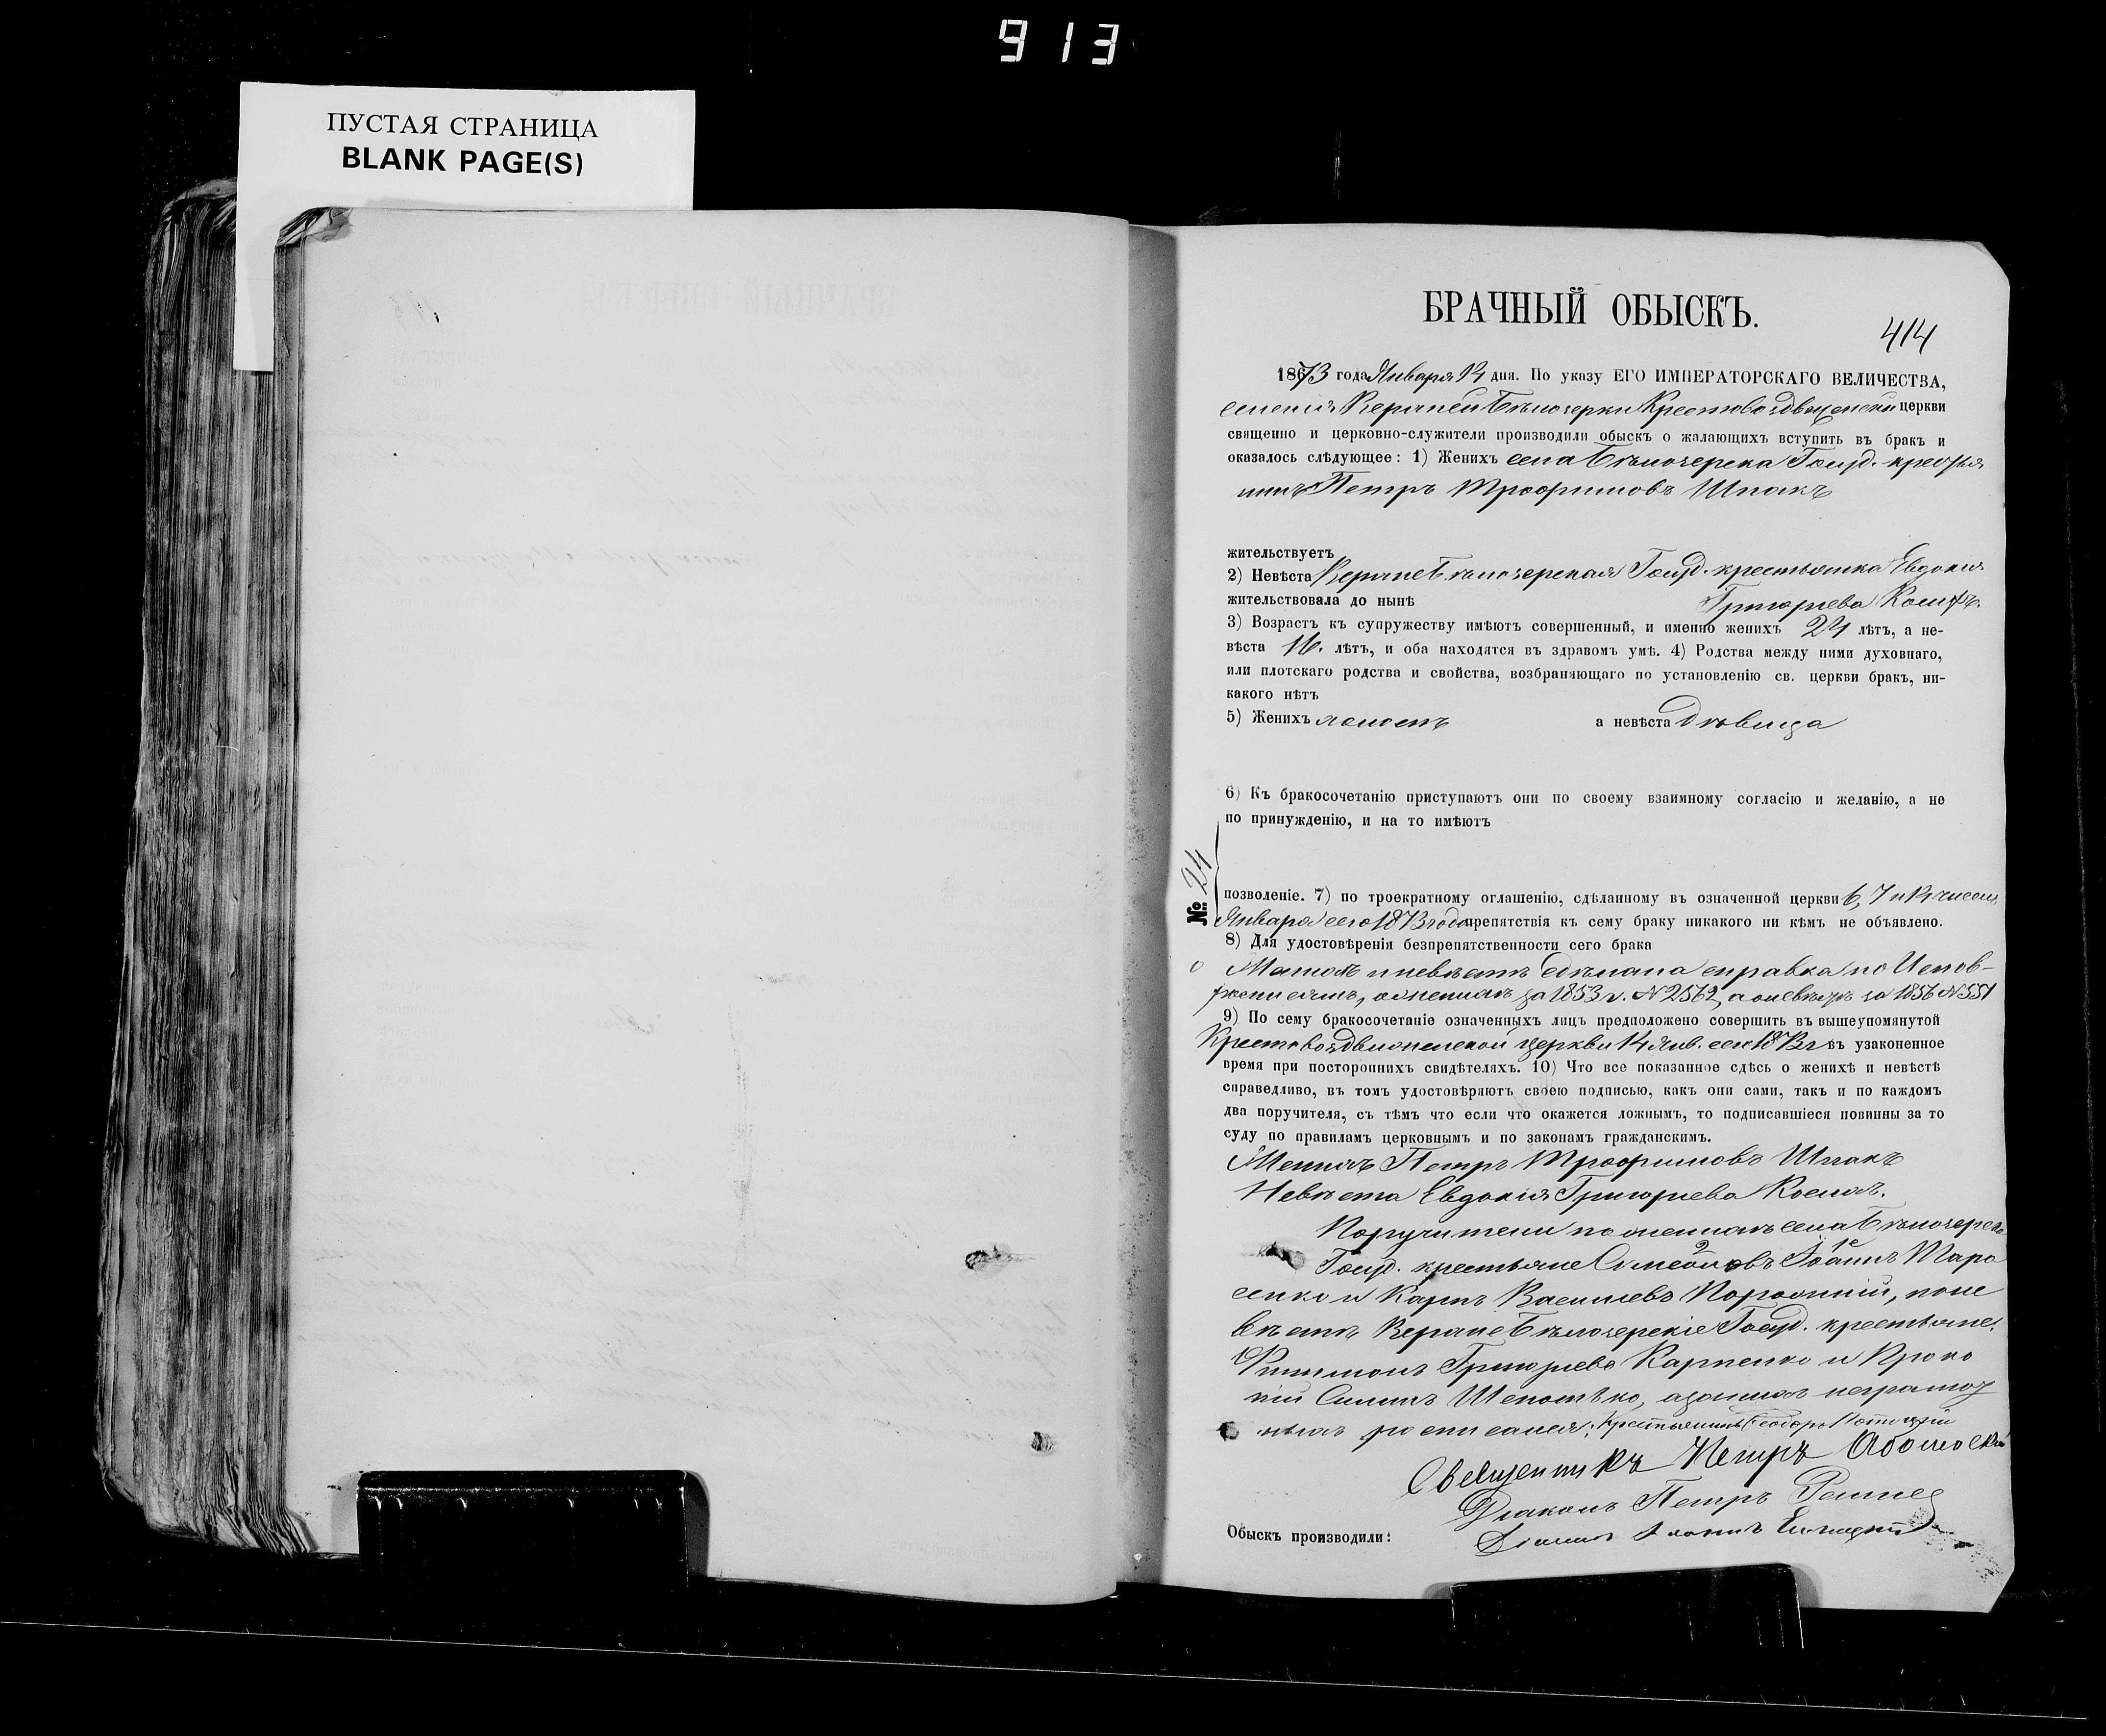 913
ПУСТАЯ СТРАНИЦА
BLANK PAGE(S)
БРАЧНЫЙ ОБЫСКЪ.
414
1873 года Января 14 дня. По указу ЕГО ИМПЕРАТОРСКАГО ВЕЛИЧЕСТВА,
селенія Верхней Бѣлозерки Крестовоздвиженской церкви
священно и церковно-служители производили обыскъ о жалающихъ вступить въ бракъ и
оказалось слѣдующее: 1) Женихъ села Бѣлозерска Госуд. крестья
нинъ Петръ Трофимовъ Шпакъ
жительствуетъ
2) Невѣста Верхнебѣлозерская Госуд. крестьянка Евдокия
жительствовала до нынѣ Григорьева
3) Возрастъ къ супружеству имѣютъ совершенный, и именно женихъ 24 лѣтъ, а не-
вѣста 16. лѣтъ, и оба находятся въ здравомъ умѣ. 4) Родства между ними духовнаго,
или плотскаго родства и свойства, возбраняющаго по установленію св. церкви бракъ, ни-
какого нѣтъ
5) Женихъ холостъ а невѣста дѣвица
6) Къ бракосочетанію приступаютъ они по своему взаимному согласію и желанію, а не
по принужденію, и на то имѣютъ
№ 24
позволеніе. 7) по троекратному оглашенію, сдѣланному въ означенной церкви 6, 7 и 14 числ.
Января сего 1873 года препятствія къ сему браку никакого ни кѣмъ не объявлено.
8) Для удостовѣренія безпрепятственности сего брака
о и невѣстѣ сдѣлана справка по Испов-
росписямъ, о женихѣ за 1853 г. № 2562, а о невѣстѣ за 1856 № 551
9) По сему бракосочетаніе означенныхъ лицъ предположено совершить въ вышеупомянутой
Крестовоздвиженской церкви 14 Янв. сего 1873 г въ узаконенное
время при посторонныхъ свидѣтеляхъ. 10) Что все показанное сдѣсь о женихѣ и невѣстѣ
справедливо, въ томъ удостовѣряютъ своею подписью, какъ они сами, такъ и по каждомъ
два поручителя, съ тѣмъ что если что окажется ложнымъ, то подписавшіеся повинны за то
суду по правиламъ церковнымъ и по законамъ гражданскимъ.
Женихъ Петръ Трофимовъ Шпакъ
Невѣста Евдокія Григорьева
Поручители по женихѣ села Бѣлозерска
Госуд. крестьяне Симеоновъ Іоаннъ Тара
сенко и Карпъ Васильевъ, по не
вѣстѣ Верхнебѣлозерскіе Госуд. крестьяне:
Филимонъ Григорьевъ Карпенко и Проко
пій, а за нихъ неграмот
ныхъ росписался: Крестьянинъ Ѳеодоръ
Священникъ Петръ
Діаконъ Петръ
Обыскъ производили: